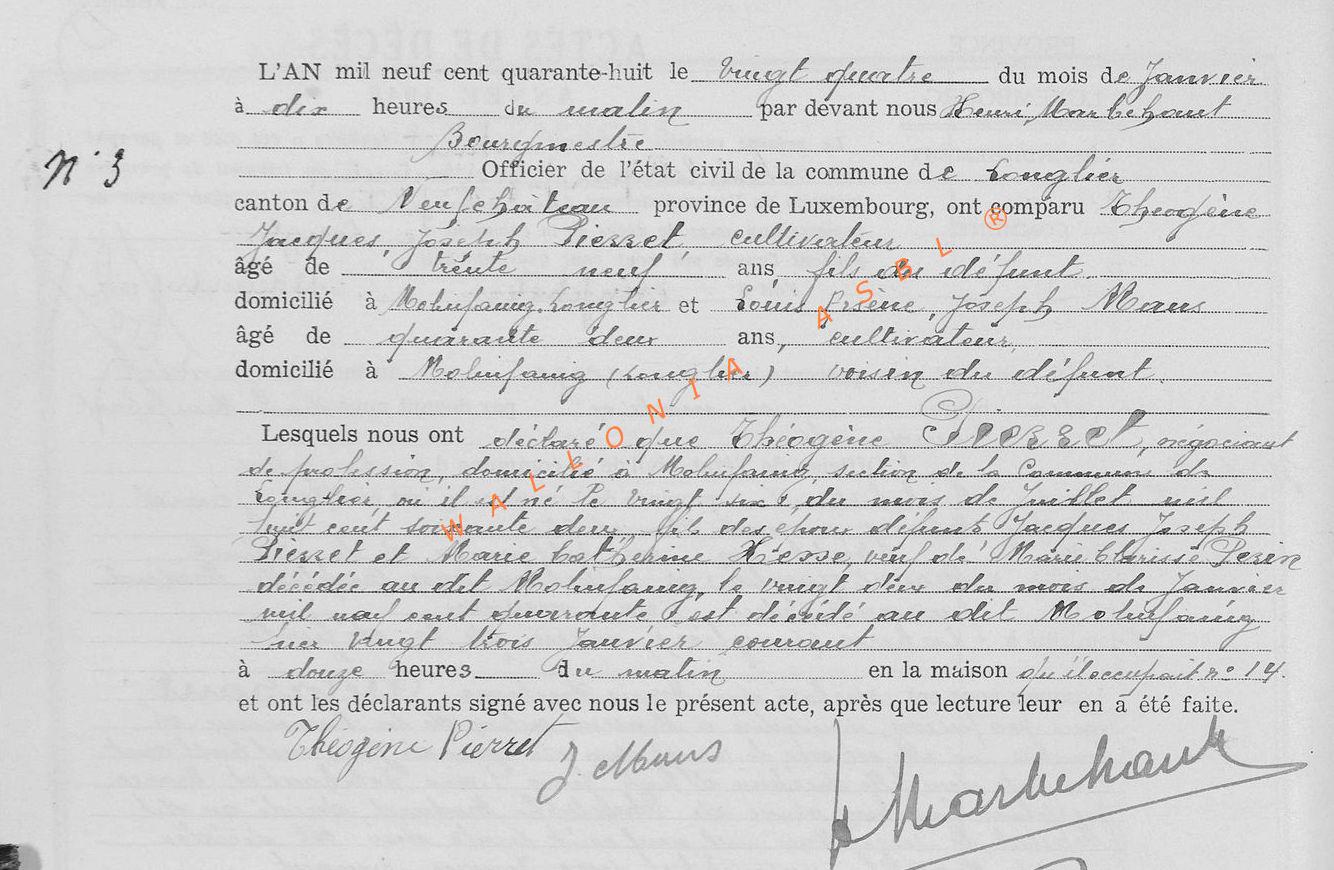 L'AN mil neuf cent quarante-huit le vingt quatre du mois de Janvier
à dix heures du matin par devant nous Henri Marbehant
Bourgmestre
N° 3
Officier de l'état civil de la commune de Longlier
canton de Neufchâteau province de Luxembourg, ont comparu Théogène
Jacques, Joseph Pierret cultivateur
âgé de trente neuf ans fils du défunt
domicilié à Molinfaing-Longlier et Louis Arsène, Joseph Maus
âgé de quarante deux ans, cultivateur,
domicilié à Molinfaing (Longlier) voisin du défunt.
Lesquels nous ont déclaré que Théogène Pierret, négociant
de profession, domicilié à Molinfaing, section de la Commune de
Longlier, où il est né le vingt six, du mois de Juillet mil
huit cent soixante deux fils des époux défunts Jacques Joseph
Pierret et Marie Catherine Hesse, veuf de Marie Clarisse Pesin
décédée au dit Molinfaing, le vingt deux du mois de Janvier
mil neuf cent quarante est décédé au dit Molinfaing
hier vingt trois Janvier courant
à douze heures du matin en la maison qu'il occupait n° 14.
et ont les déclarants signé avec nous le présent acte, après que lecture leur en a été faite.
Théogène Pierret J. Maus
H Marbehant
WALLONIA ASBL ®